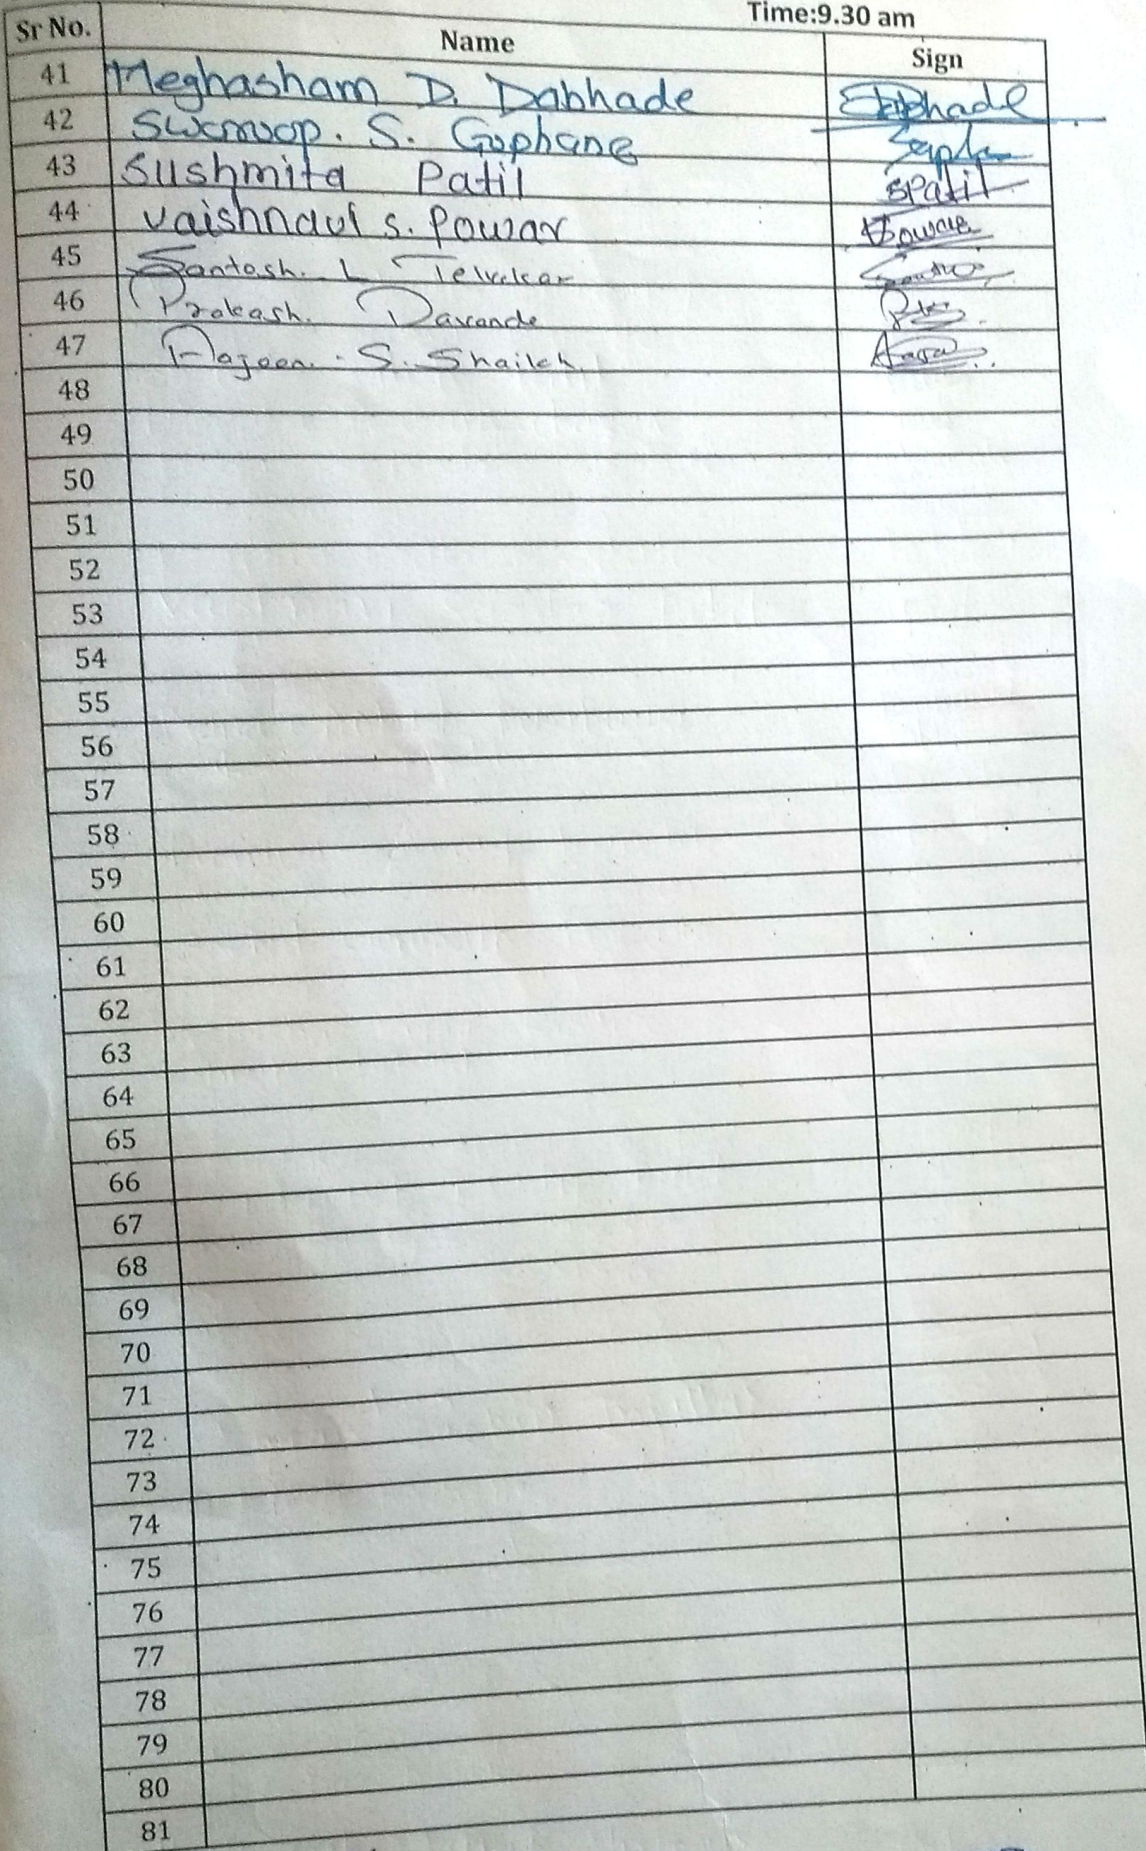 Time:9.30 am
Sr No. Name Sign
41 Meghasham D. Dabhade Dabhade
42 Swaroop. S. Gophane
43 Sushmita Patil SPatil
44 Vaishnavi S. Powar Powar
45 Santosh. L Telvekar
46 Prakash. Davande
47 S. Shaikh.
48
49
50
51
52
53
54
55
56
57
58
59
60
61
62
63
64
65
66
67
68
69
70
71
72
73
74
75
76
77
78
79
80
81